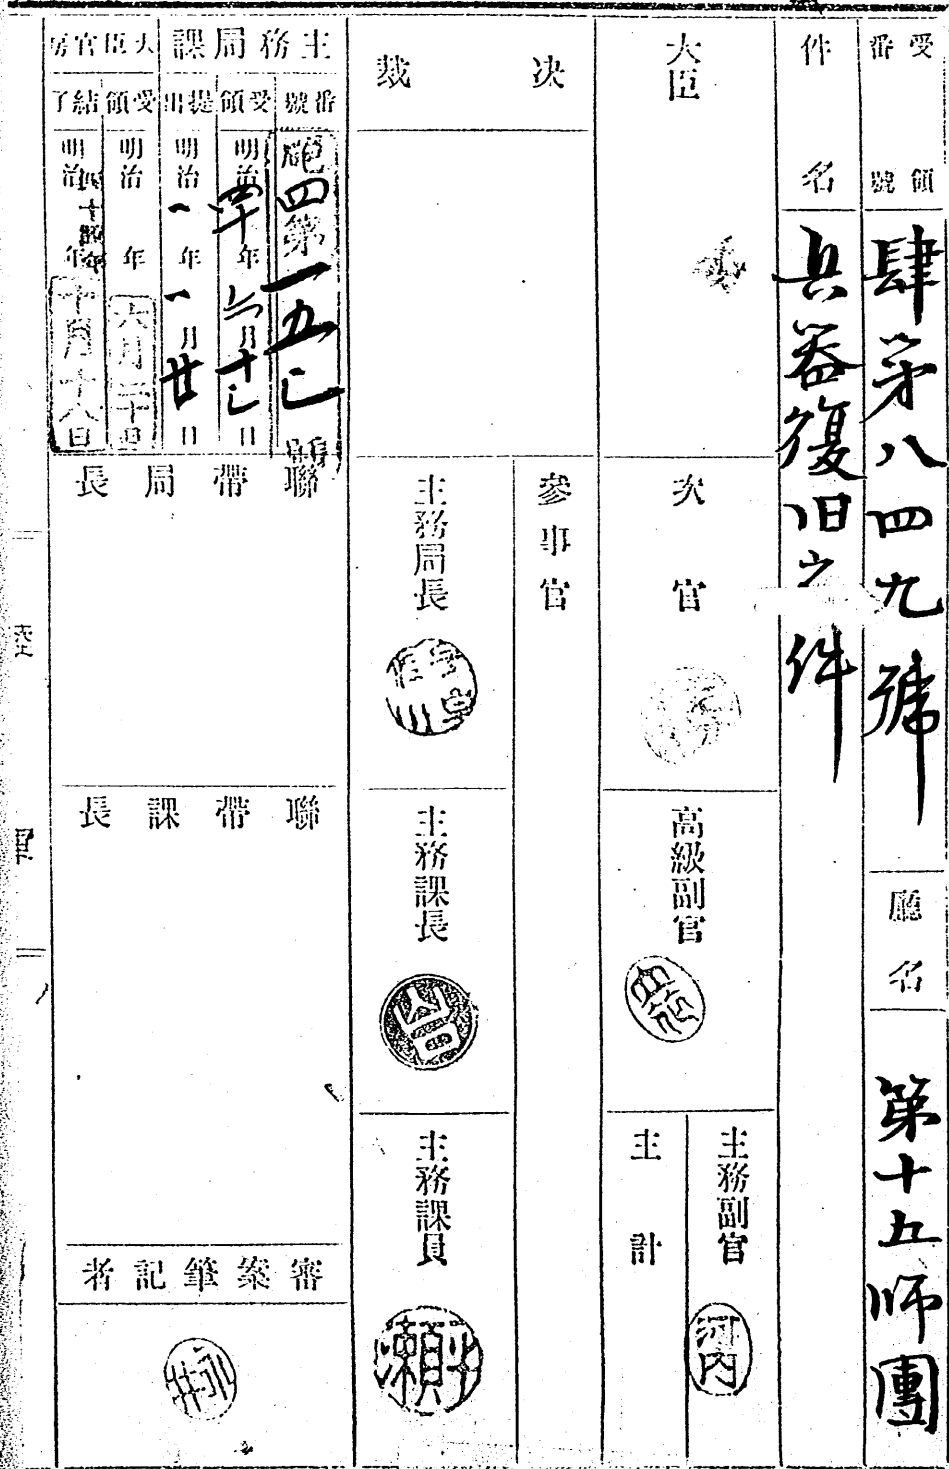 受領番號
肆第八四九號
廳名
第十五師團
件名
兵器復旧之件
大臣
次官
高級副官
主務副官
河内
主計
決裁
參事官
主務局長
主務課長
主務課員
平瀬
主務局課
番號
砲四第一五七號
受領
明治四十年六月十七日
提出
明治一年一月廿日
大臣官房
受領
明治 年
六月二十日
結了
明治四十四年
十月十八日
聯帶局長
聯帶課長
審案筆記者
永井
陸軍